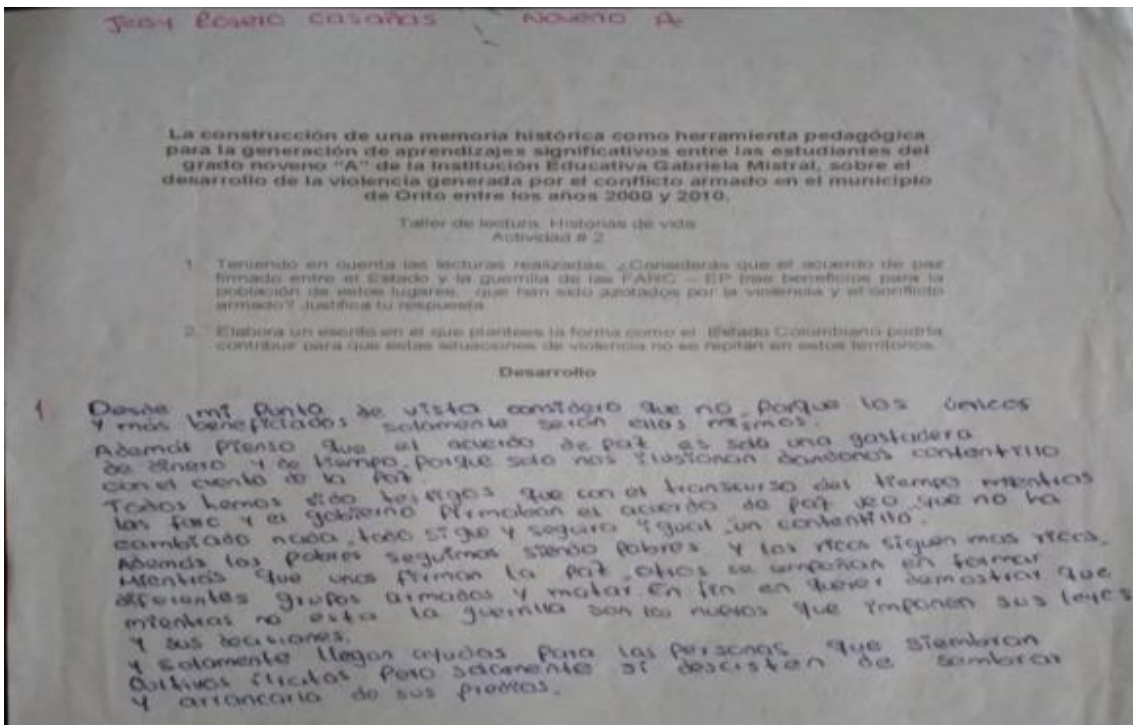 Jeny Rosero Casañas Noveno A
La construcción de una memoria histórica como herramienta pedagógica
para la generación de aprendizajes significativos entre las estudiantes del
grado noveno "A" de la Institución Educativa Gabriela Mistral, sobre el
desarrollo de la violencia generada por el conflicto armado en el municipio
de Orito entre los años 2000 y 2010.
Taller de lectura. Historias de vida
Actividad # 2
1. Teniendo en cuenta las lecturas realizadas, ¿Consideras que el acuerdo de paz
firmado entre el Estado y la guerrilla de las FARC – EP trae beneficios para la
población de estos lugares, que han sido azotados por la violencia y el conflicto
armado? Justifica tu respuesta.
2. Elabora un escrito en el que plantees la forma como el Estado Colombiano podría
contribuir para que estas situaciones de violencia no se repitan en estos territorios.
Desarrollo
1. Desde mi punto de vista considero que no. Porque los únicos
y más beneficiados solamente serán ellos mismos.
Además pienso que el acuerdo de paz es solo una gastadera
de dinero y de tiempo. Porque solo nos ilusionan dandonos contentillo
con el cuento de la paz.
Todos hemos sido testigos que con el transcurso del tiempo mientras
las farc y el gobierno firmaban el acuerdo de paz veo que no ha
cambiado nada, todo sigue y seguira igual un contentillo.
Además los pobres seguimos siendo pobres y los ricos siguen mas ricos.
Mientras que unos firman la paz otros se empeñan en formar
diferentes grupos armados y matar. En fin en querer demostrar que
mientras no esta la guerrilla son los nuevos que imponen sus leyes
y sus decisiones.
y solamente llegan ayudas para las personas que siembran
cultivos ilicitos pero solamente si descisten de sembrar
y arrancarla de sus predios.